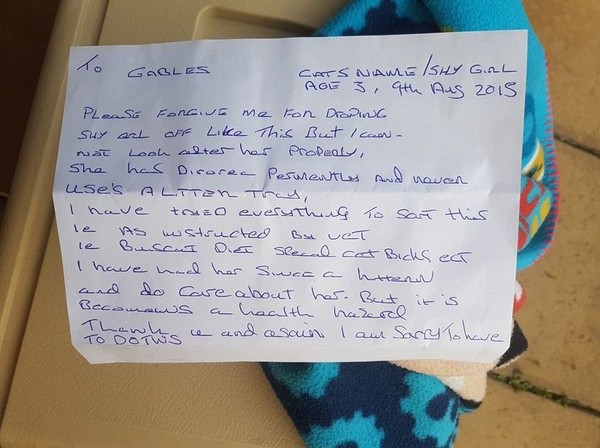 To GABLES
CATS NAME/SHY GIRL
AGE 3, 9th Aug 2015
PLEASE FORGIVE ME FOR DROPING
SHY GRL OFF LIKE THIS BUT I CAN-
NOT LOOK after her Properly,
She has Diarorea Permently AND never
USE'S A LITTER TRAY,
I have TRIED everything TO SORT this
ie AS INSTRUCTED By VET
ie BISCUIT DIET SPECAL CAT BICKS ECT
I have had her Since a kitten
and do Care about her. But it is
Becomeing a health hazard
Thank u and again I am SORRY To have
TO DO THIS